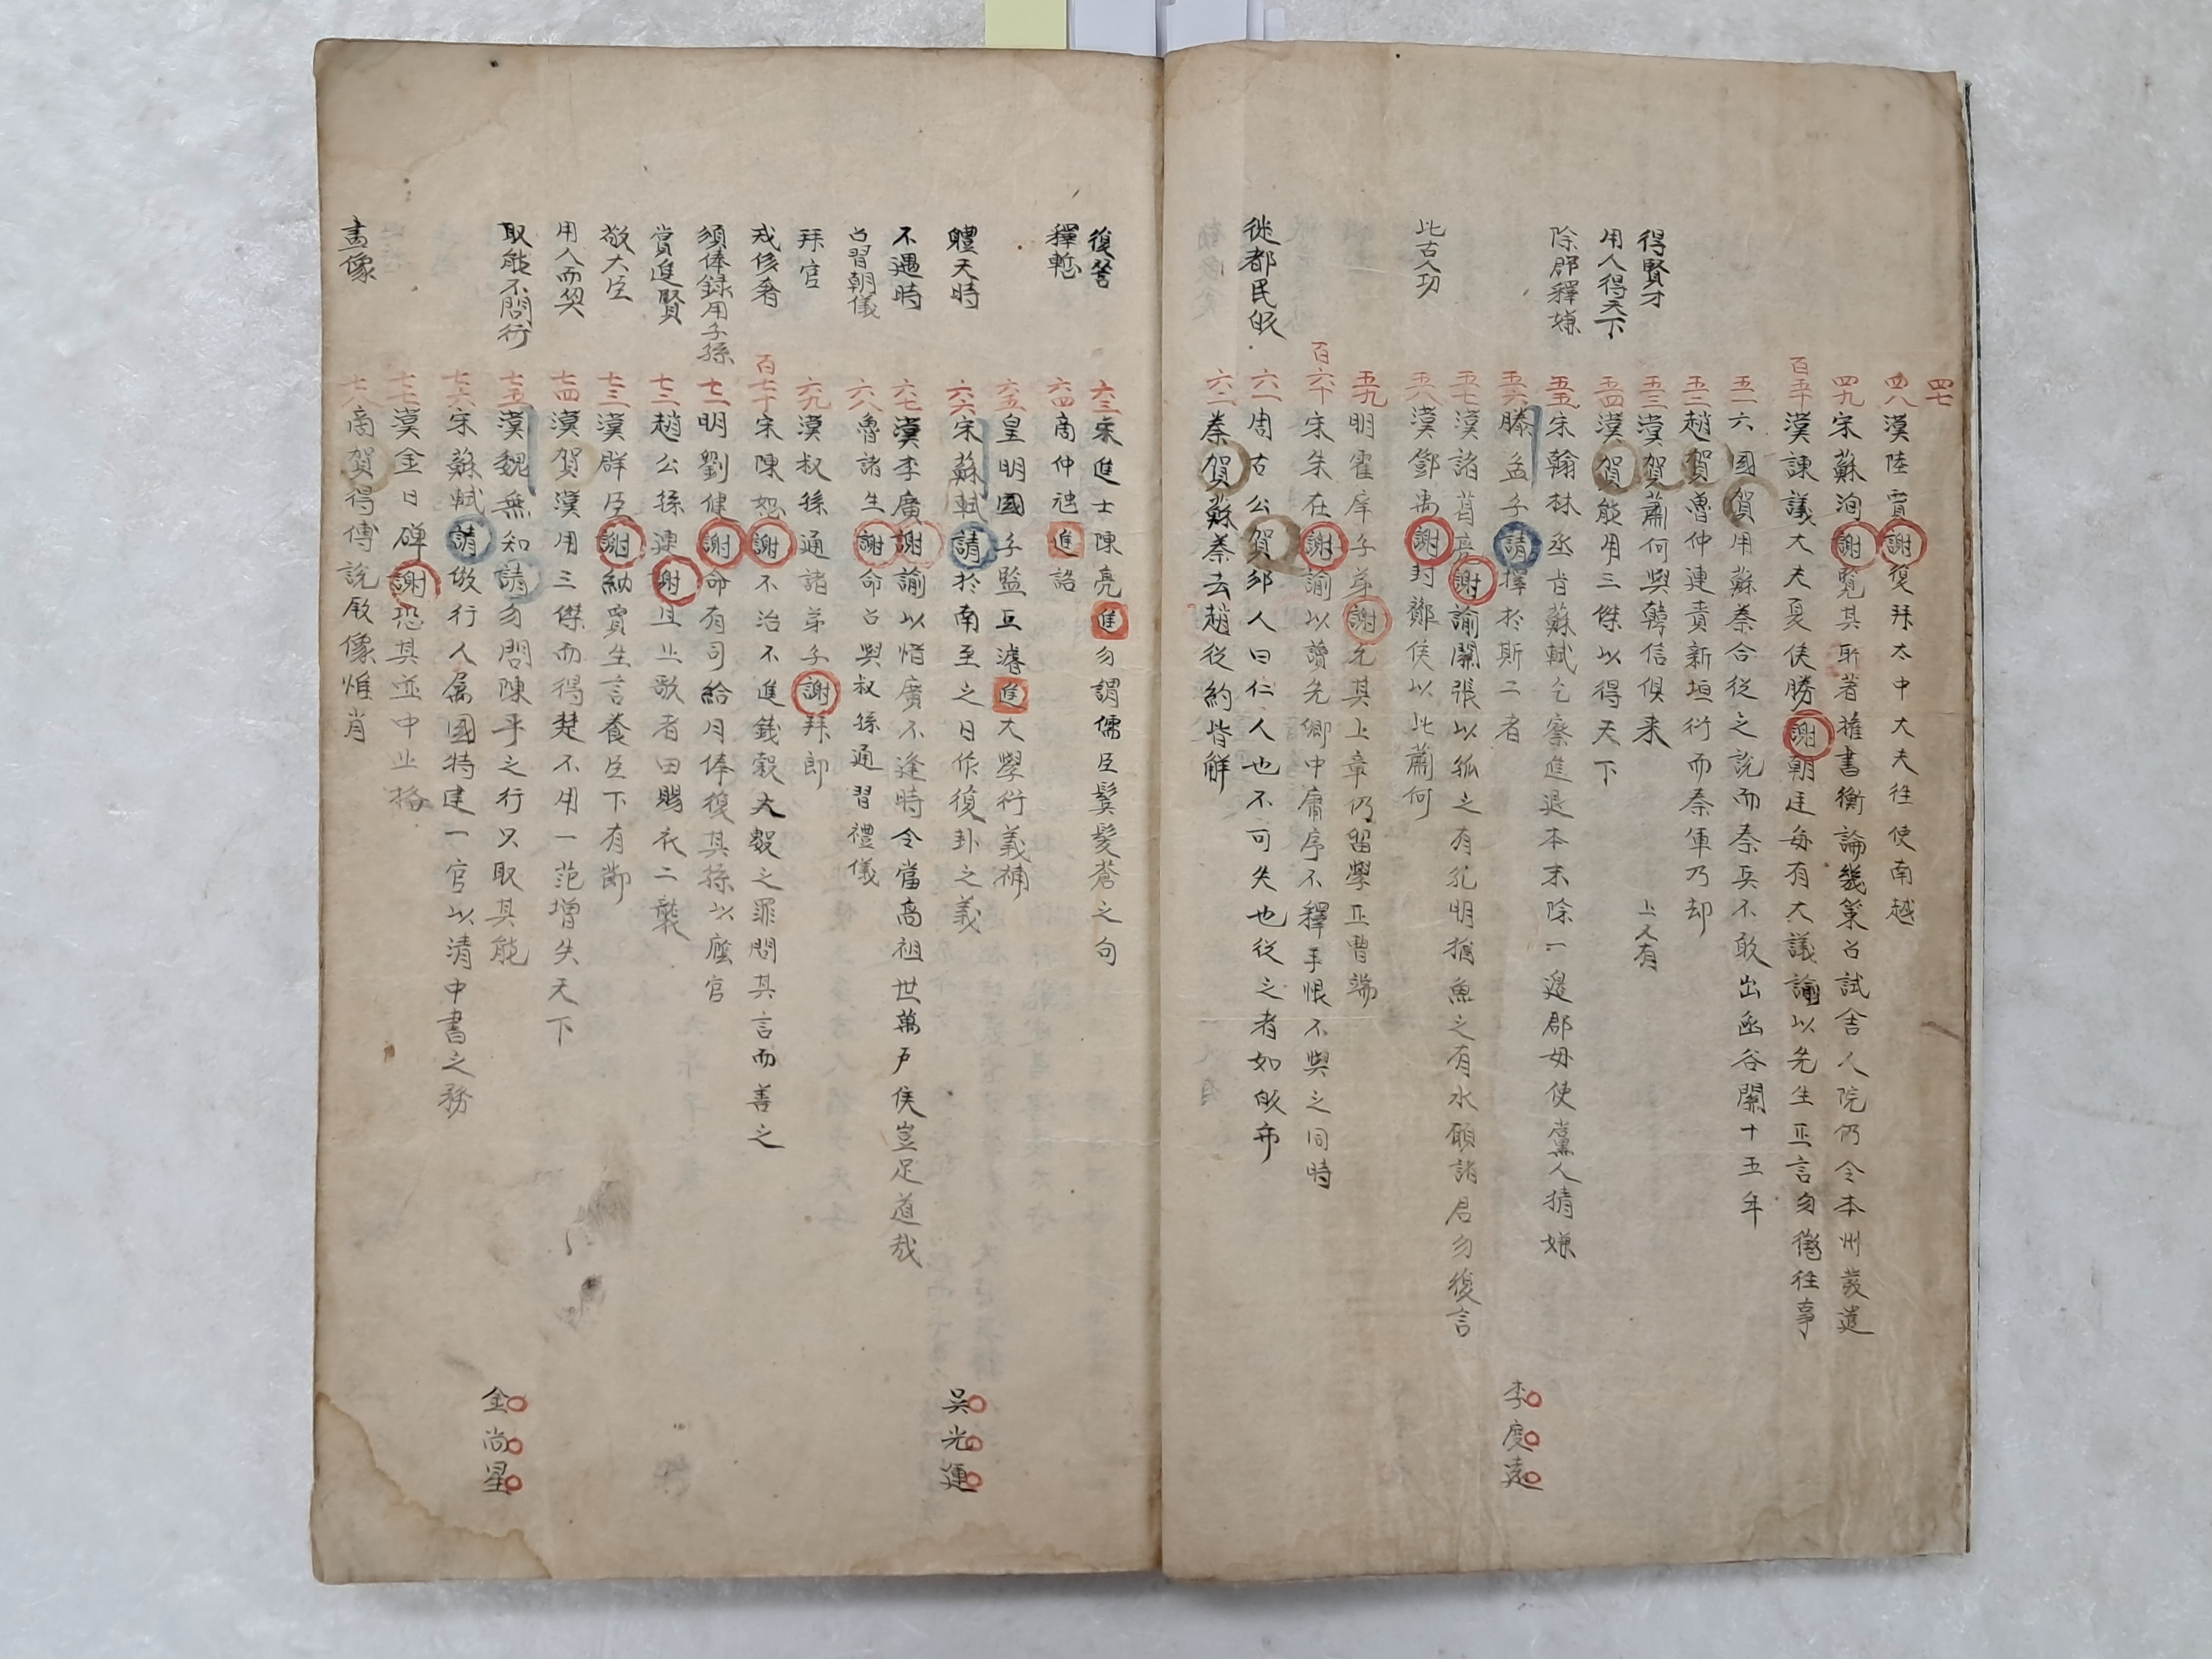 四七
四八 漢陸賈謝復拜太中大夫往使南越
四九 宋蘇洵謝覽其所著權書衡論幾策召試舍人院仍令本州發遣
百五十 漢諫議大夫夏侯勝謝朝廷每有大議諭以先生正言勿徵往事
五一 六國賀用蘇秦合從之說而秦兵不敢出函谷關十五年
五二 趙賀魯仲連責新垣衍而秦軍乃却
得賢才
五三 漢賀蕭何與韓信俱來
上又有
用人得天下
五四 漢賀能用三傑以得天下
除郡釋嫌
五五 宋翰林丞旨蘇軾乞察進退本末除一邊郡毋使黨人猜嫌
五六 滕孟子請擇於斯二者
李度遠
五七 漢諸葛亮謝諭關張以孤之有孔明猶魚之有水願諸君勿復言
比古人功
五八 漢鄧禹謝封酇侯以比蕭何
五九 明霍庠子弟謝允其上章仍留學正曹端
百六十 宋朱在謝諭以讀先卿中庸序不釋手恨不與之同時
徙都民皈
六一 周古公賀邠人曰仁人也不可失也從之者如皈市
六二 秦賀蘇秦去趙從約皆解
復答
六三 宋進士陳亮進勿謂儒臣鬂髮蒼之句
釋慙
六四 商仲虺進誥
六五 皇明國子監丘濬進大學衍義補
體天時
六六 宋蘇軾請於南至之日作復卦之義
吳光運
不遇時
六七 漢李廣謝諭以惜廣不逢時令當高祖世萬戶侯豈足道哉
召習朝儀
六八 魯諸生謝命召與叔孫通習禮儀
拜官
六九 漢叔孫通諸弟子謝拜郎
戎侈奢
百七十 宋陳恕謝不治不進錢穀大數之罪問其言而善之
須俸録用子孫
七一 明劉健謝命有司給月俸復其孫以廕官
賞進賢
七二 趙公孫連謝且止歌者田賜衣二襲
敬大臣
七三 漢群臣謝納賈生言養臣下有節
用人而契
七四 漢賀漢用三傑而得楚不用一范增失天下
取能不問行
七五 漢魏無知請勿問陳平之行只取其能
金尚星
七六 宋蘇軾請倣行人屬國特建一官以清中書之務
七七 漢金日磾謝恐其並中止
畫像
七八 商賀得傅說厥像惟肖